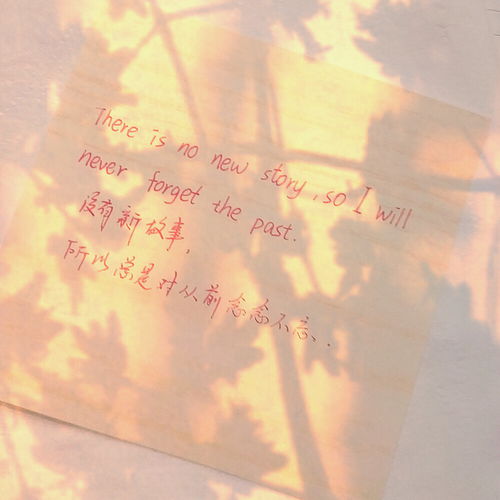 There is no new story, so I will
never forget the past.
没有新故事，
所以总是对从前念念不忘、.